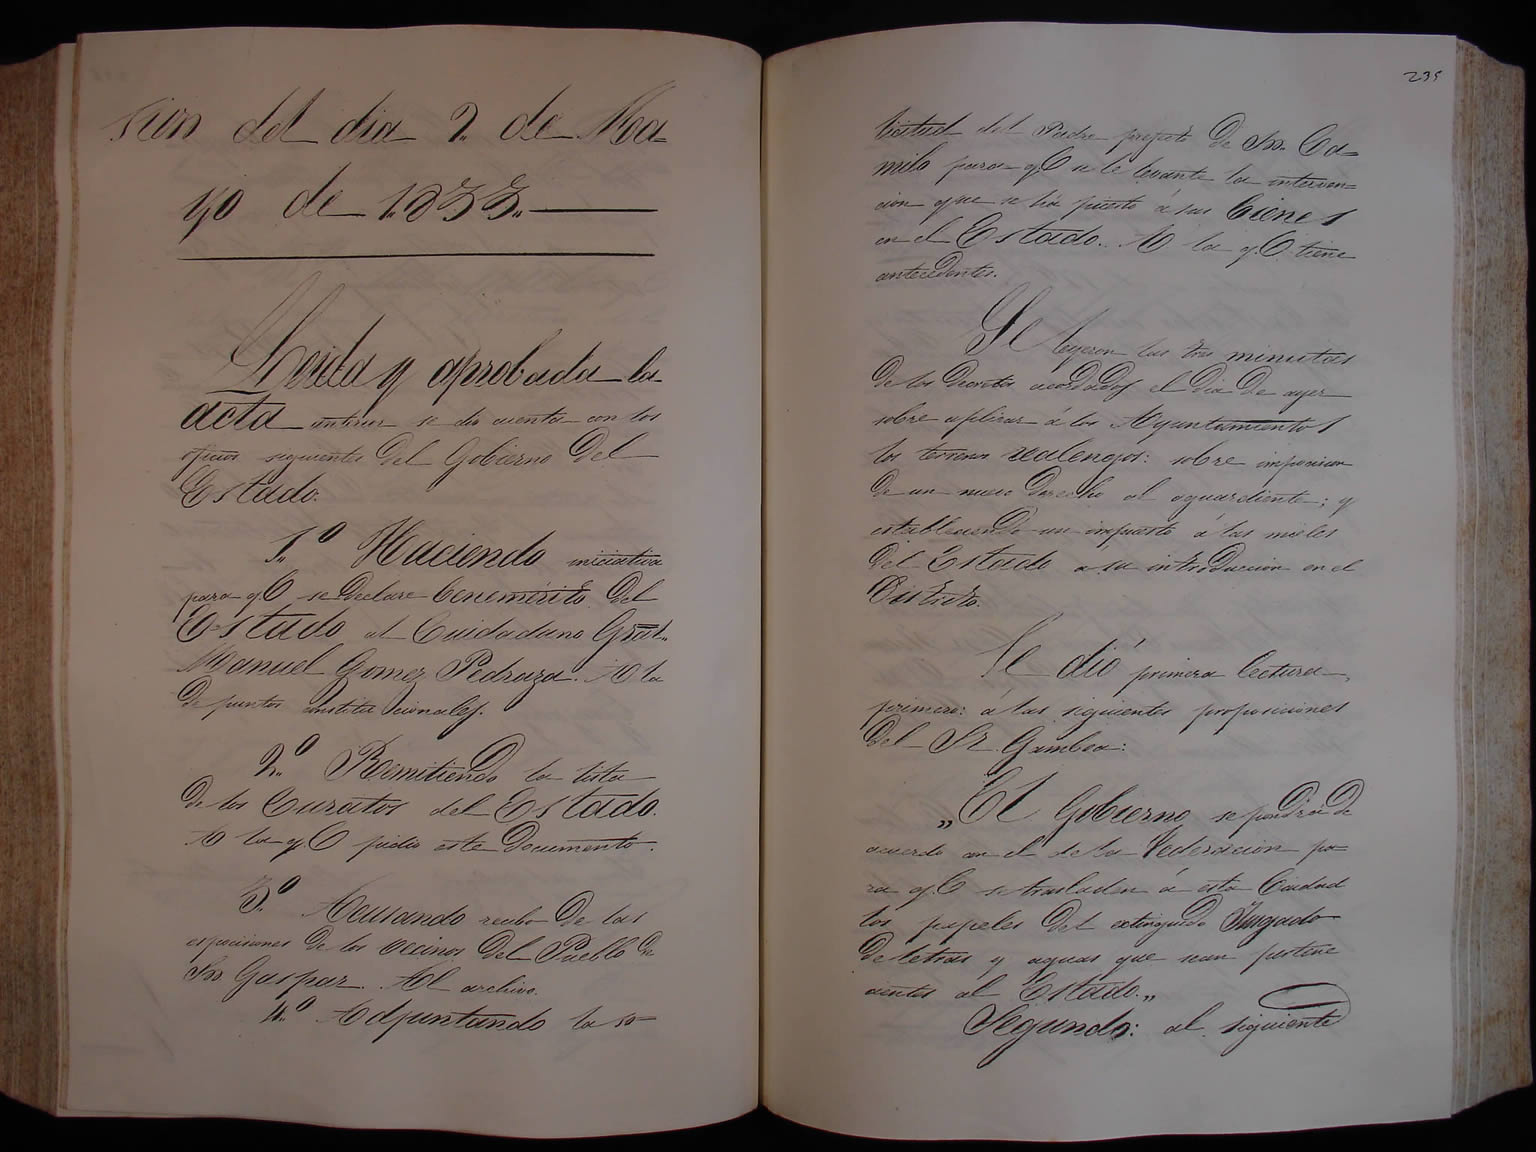 sion del dia 2. de Ma=
yo de 1833.
Leida y aprobada la
acta anterior se dio cuenta con los
oficios siguientes del Gobierno del
Estado.
1.º Haciendo iniciativa
para q.e se declare benemérito del
Estado al Cuidadano Gral.
Manuel Gomez Pedraza. A la
de puntos constitucionales.
2.º Remitiendo la lista
de los Curatos del Estado.
A la q.e pidio este Documento.
3.º Acusando recibo de las
esposiciones de los vecinos del Pueblo de
Sn. Gaspar. Al archivo.
4.º Adjuntando la so=
235
licitud del Padre preposito de Sn. Ca=
milo para q.e se le levante la interven=
cion que se ha puesto á sus bienes
en el Estado. A la q.e tiene
antecedentes.
Se leyeron las tres minutas
de los decretos acordados el dia de ayer
sobre aplicar á los Ayuntamientos
los terrenos realengos: sobre imposicion
de un nuevo derecho al aguardiente; y
estableciendo un impuesto á las mieles
del Estado á su introduccion en el
Distrito.
Se dió primera lectura,
primero: á las siguientes proposiciones
del Sr. Gamboa:
„El Gobierno se pondrá de
acuerdo con el de la Federacion pa=
ra q.e se trasladen á esta Ciudad
los papeles del extinguido Juzgado
de letras y aguas que sean pertene
cientes al Estado.„
Segundo: al siguiente